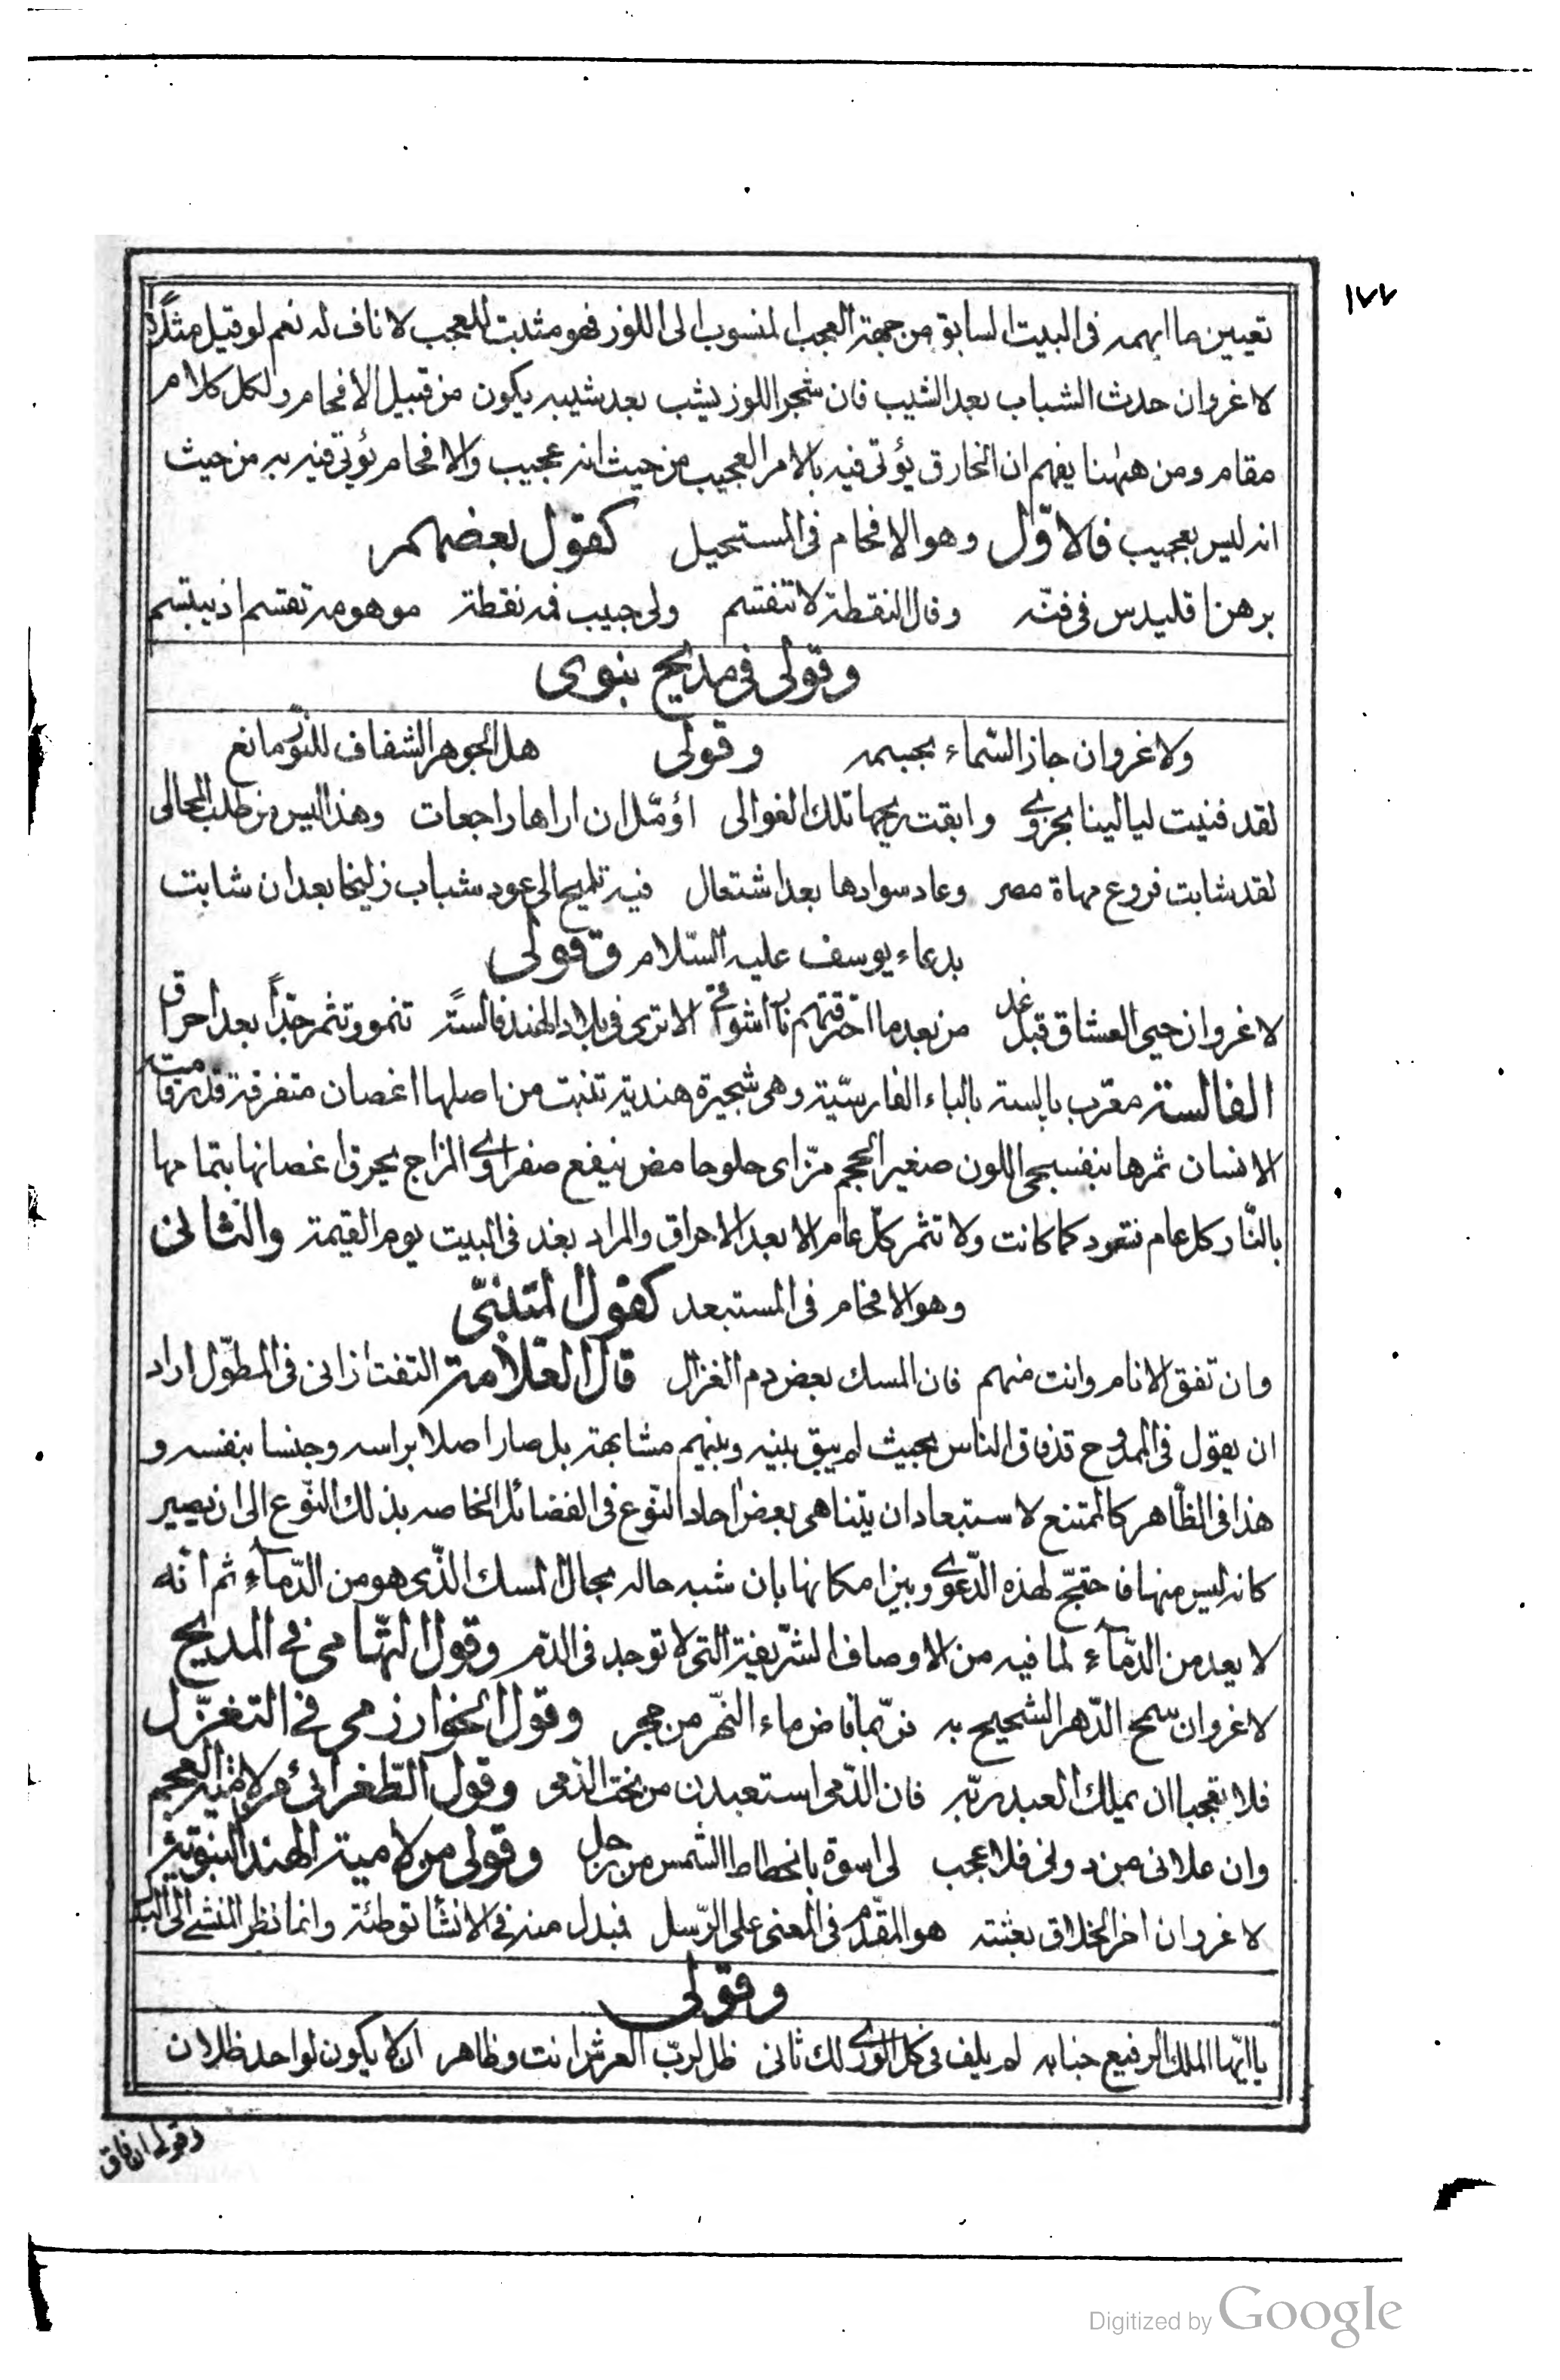 ١٧٧
تعيين ما ابهمه فى البيت السابق من جهة العجب المنسوب الى اللوز فهو مثبت للعجب لا ناف له نعم لو قيل مثلاً
لا غرو ان حدث الشباب بعد الشيب فان شجر اللوز يشب بعد شيبه يكون من قبيل الافحام ولكل كلام
مقام ومن ههنا يفهم ان الخارق يؤتى فيه بالامر العجيب من حيث انه عجيب والافحام يؤتى فيه به من حيث
انه ليس بعجيب فالاوّل وهو الافحام فى المستحيل كقول بعضهم
برهن اقليدس فى فنّه وقال النقطة لا تنقسم ولى حبيب فمه نقطة موهومة تقتسم اذ يبتسم
وقولى فى مديح نبوى
ولا غرو ان جاز السّماء بجسمه وقولى هل الجوهر الشفاف للنّور مانع
لقد فنيت ليالينا بحزوى وابقت ريحها تلك الغوالى اؤمّل ان اراها راجعات وهذا ليس من طلب المحالى
لقد شابت فروع مهاة مصر وعاد سوادها بعد اشتعال فيه تلميح الى عود شباب زليخا بعد ان شابت
بدعاء يوسف عليه السّلام وقولى
لا غرو ان حيى العشاق قبل غد من بعد ما احترقتهم نار اشواق الا ترى فى بلاد الهند فالسةً تنمو وتثمر جدّاً بعد احراق
الفالسة معرب پالسه بالباء الفارسيّة وهى شجيرة هندية تنبت من اصلها اغصان متفرقة قدر قامت
الانسان ثمرها بنفسجى اللون صغير الحجم مزّ اى حلو حامض ينفع صفراوى المزاج يحرق اغصانها بتمامها
بالنّار كل عام فتعود كما كانت ولا تثمر كلّ عام الا بعد الاحراق والمراد بغد فى البيت يوم القيمة والثانى
وهو الافحام فى المستبعد كقول المتنبّى
وان تفق الانام وانت منهم فان المسك بعض دم الغزال قال العلّامة التفتازانى فى المطوّل اراد
ان يقول فى الممدوح قد فاق الناس بحيث لم يبق بينه وبينهم مشابهة بل صار اصلا براسه وجنسا بنفسه و
هذا فى الظّاهر كالممتنع لاستبعاد ان يتناهى بعض احاد النّوع فى الفضائل الخاصه بذلك النّوع الى ان يصير
كانه ليس منها فاحتجّ لهذه الدّعوى وبيّن امكانها بان شبه حاله بحال المسك الذّى هو من الدّماء ثم انّه
لا يعد من الدّماء لما فيه من الاوصاف الشّريفة التى لا توجد فى الدّم وقول التّهامى فى المديح
لا غرو ان سمح الدّهر الشحيح به فربّما فاض ماء النّهر من حجر وقول الخوارزمى فى التغزّل
فلا تعجبا ان يملك العبد ربّه فان الدّمى استعبدن من نحت الدمى وقول الطّغرائى فى لامية العجم
وان علانى من دونى فلا عجب لى اسوة بانحطاط الشمس من زحل وقولى من لامية الهند النبوية
لا غرو ان اخر الخلاق بعثته هو المقدّم فى المعنى على الرّسل فبدل منه فى الانشا توطئة وانما نظر المنشى الى البدل
وقولى
يا ايّها الملك الرفيع جنابه لم يلف فى كل الورى لك ثانى ظل لربّ العرش انت وظاهر ان لا يكون لواحد ظلان
وقوله ان فاق
Digitized by Google